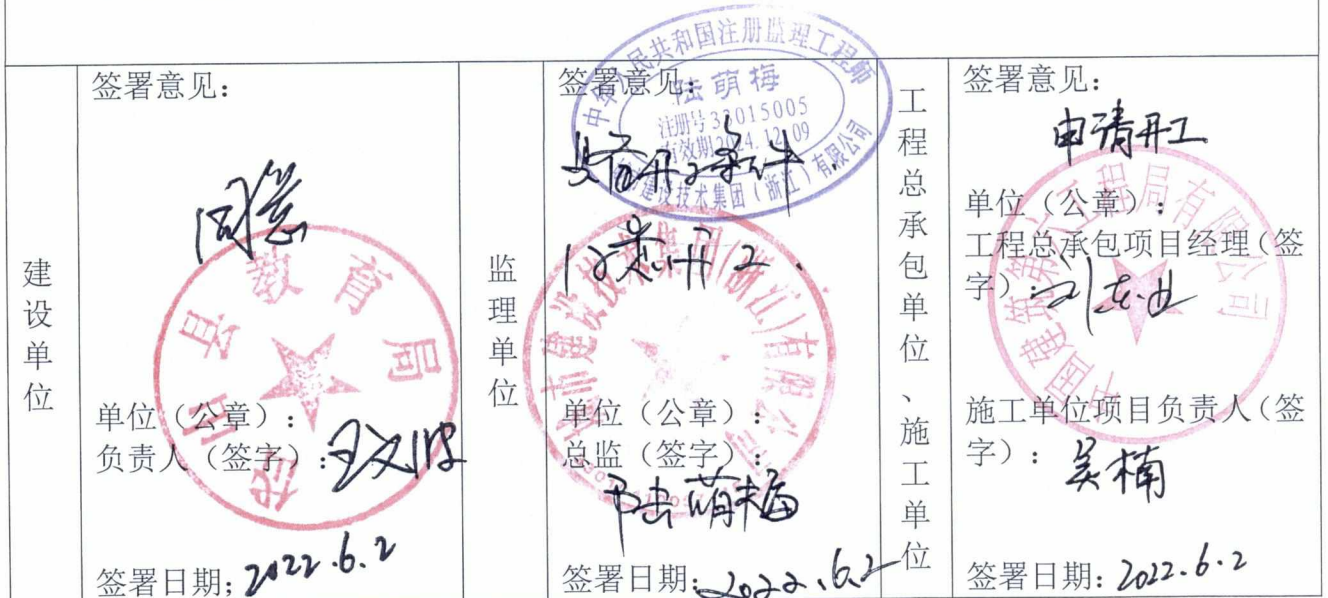 建设单位
签署意见：
同意
教育局
单位（公章）：
负责人（签字）：
签署日期；2022.6.2
监理单位
签署意见：
中华人民共和国注册监理工程师
陆萌梅
注册号33015005
有效期2024.12.09
建设技术集团（浙江）有限公司
具备开工条件.
同意开工.
市建设技术集团(浙江)有限公司
单位（公章）：
总监（签字）：
陆萌梅
签署日期：2022.6.2
工程总承包单位、施工单位
签署意见：
申请开工
中国建筑第八工程局有限公司
单位（公章）：
工程总承包项目经理（签
字）：
施工单位项目负责人（签
字）：吴楠
签署日期：2022.6.2